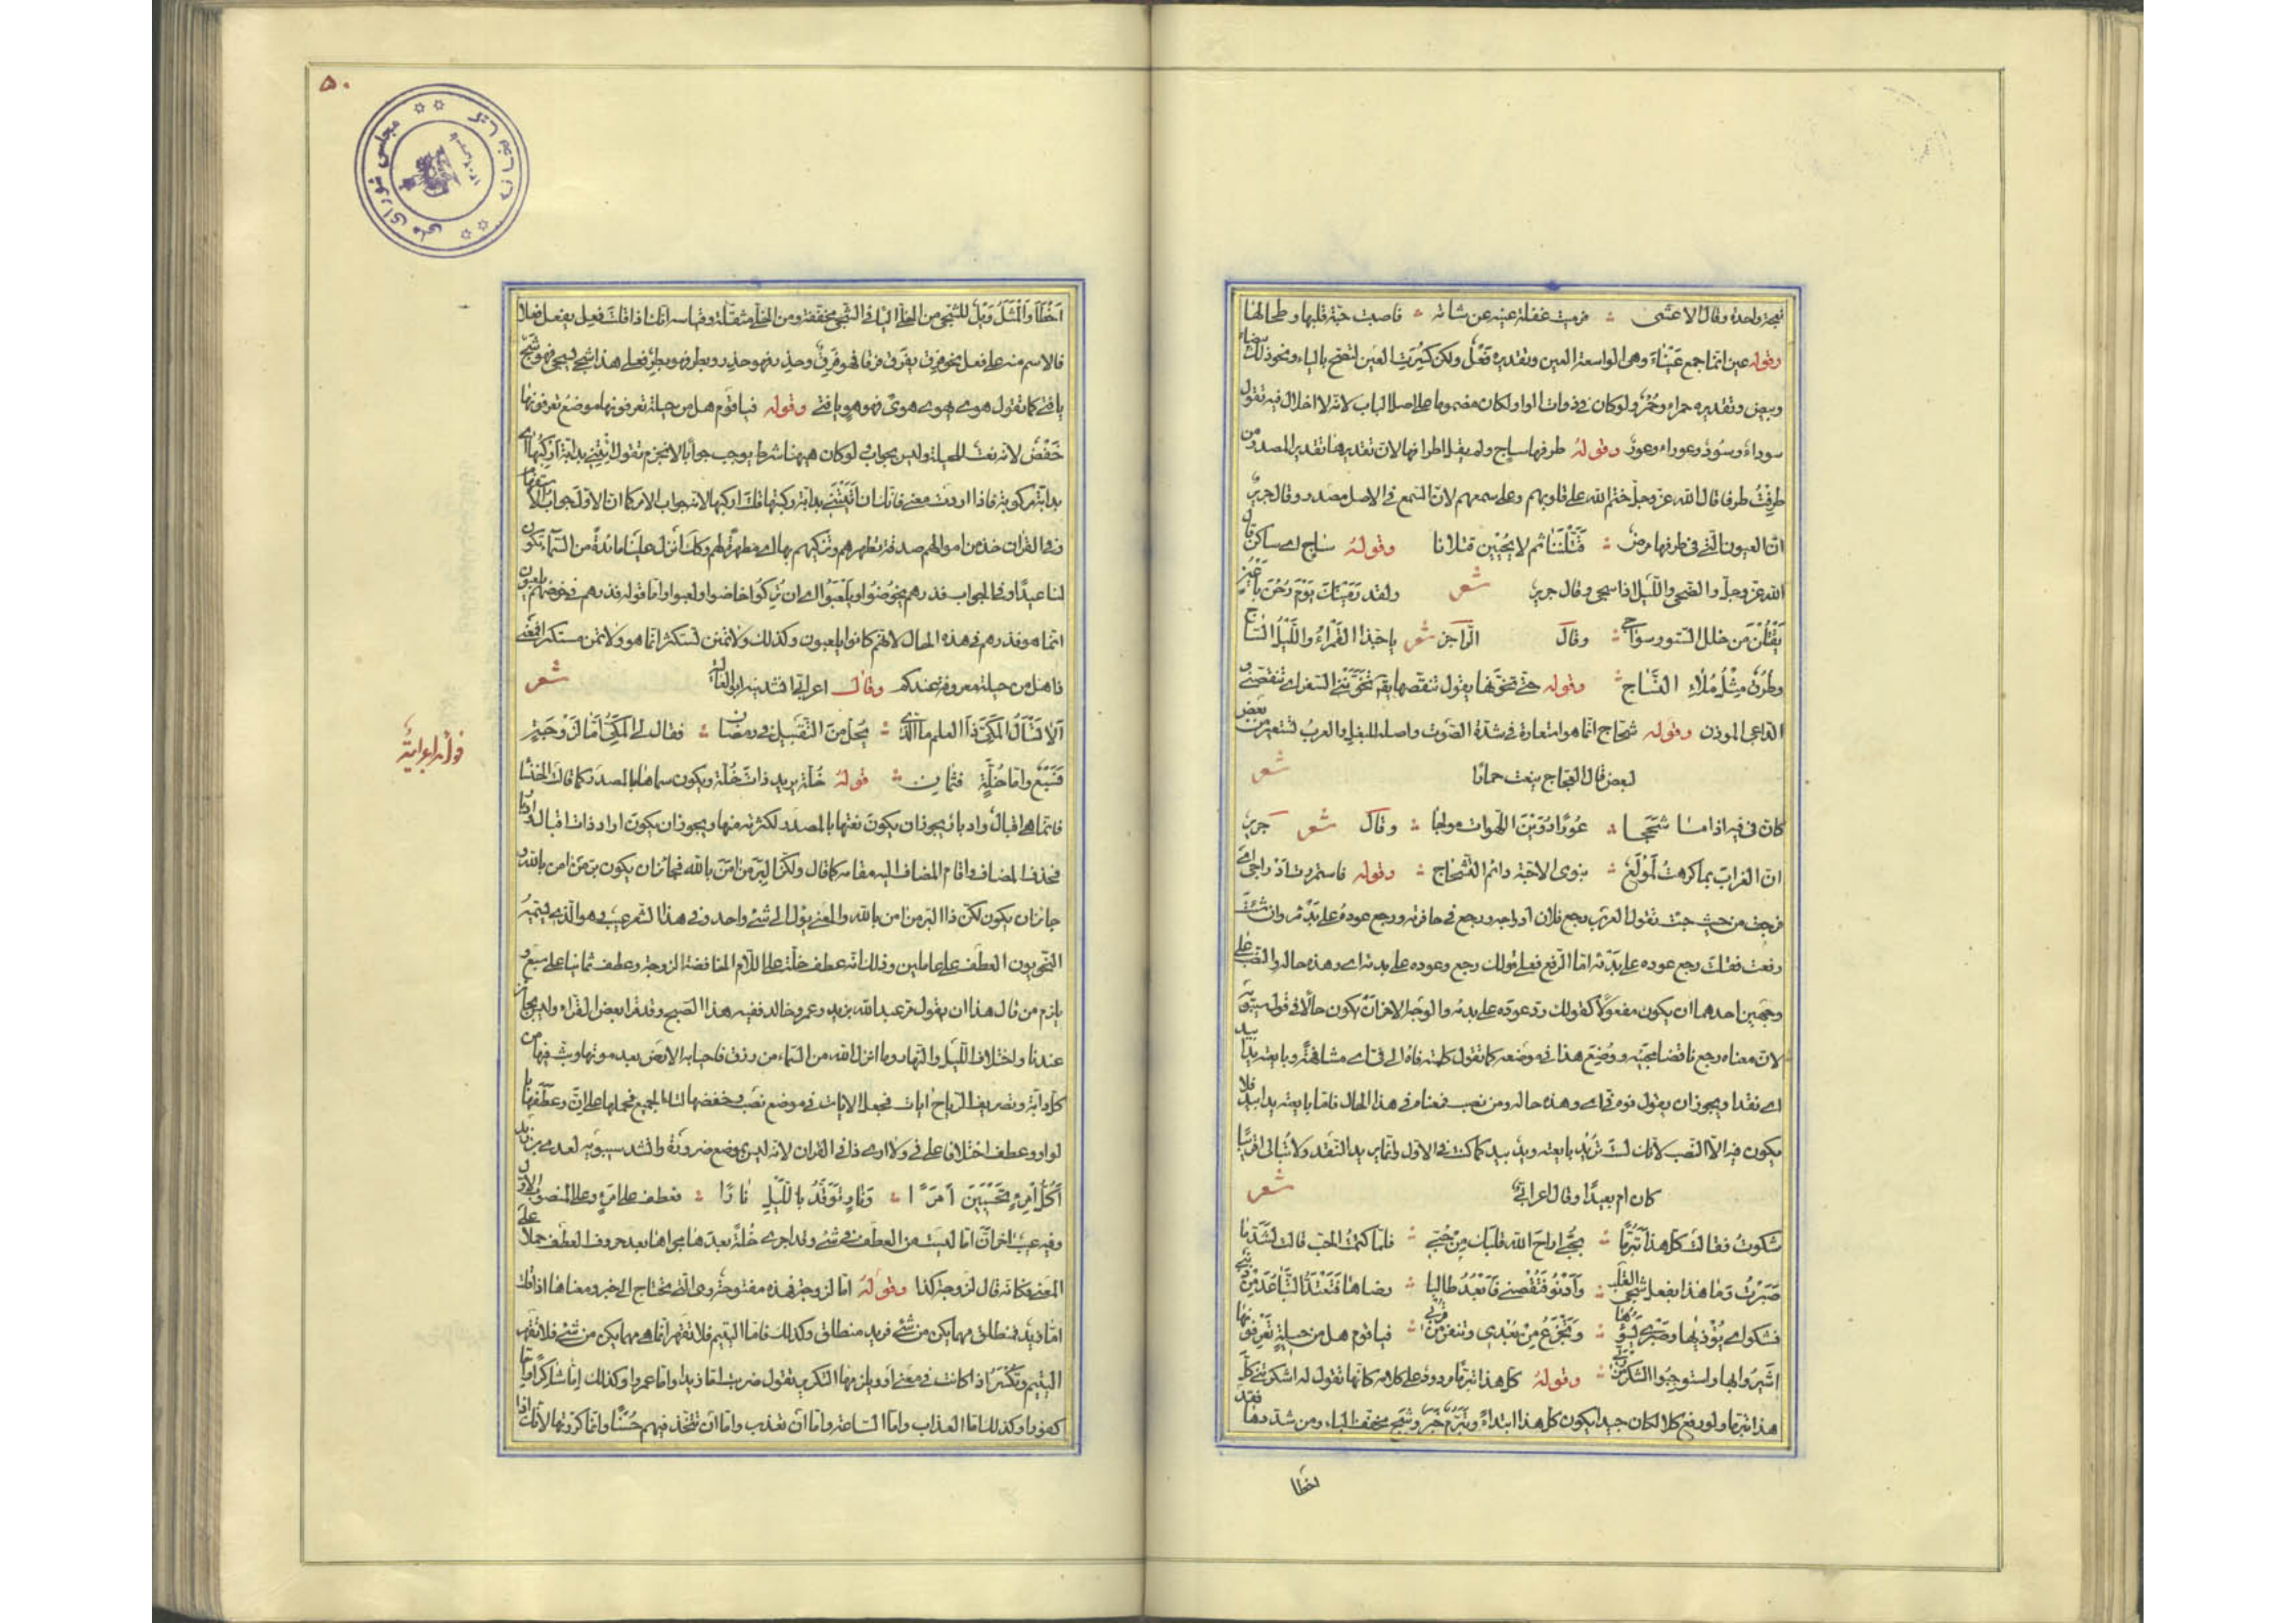 نعجة واحدة وقال الاعشى فرميت غفلة عينه عن شاته فاصبت حبة قلبها وطحالها
وقوله عين انما جمع عيناء وهى الواسعة العين وتقديره فعل ولكن كسرت العين لتصح الياء ونحو ذلك بيضاء
وبيض وتقديره حمراء وحمر ولو كان فى ذوات الواو لكان مضموما على اصل الباب لانه لا اخلال فيه تقول
سوداء وسود وعوراء وعور وقوله طرفها ساج ولم يقل اطرافها لان تقديرها تقدير المصدر من
طرفت طرفا قال الله عز وجل ختم الله على قلوبهم وعلى سمعهم لان السمع فى الاصل مصدر وقال جرير
ان العيون التى فى طرفها مرض قتلننا ثم لا يحيين قتلانا وقوله ساج اى ساكن قال
الله عز وجل والضحى والليل اذا سجى وقال جرير شعر ولقد رمينك يوم رحن باعين
يقتلن من خلل الستور سواجى وقال الراجز شعر يا حبذا القمراء والليل الساج
وطرق مثل ملاء النساج وقوله حتى تخونها يقول تنقصها يقال تخونني السفر اى تنقصنى و
الداعى الموذن وقوله شحاج انما هو استعارة فى شدة الصوت واصله للبغل والعرب تستعير من بعض
لبعض قال العجاج ينعت حمارا شعر
كان فى فيه اذا ما شحجا عودا دوين اللهوات مولجا وقال شعر جرير
ان الغراب بما كرهت لمولع بنوى الاحبة دائم التشحاج وقوله فاستمرت ادراجى اى
فرجعت من حيث جئت تقول العرب رجع فلان ادراجه ورجع فى حافرته ورجع عوده على بدئه وان شئت
رفعت فقلت رجع عوده على بدئه اما الرفع فعلى قولك رجع وعوده على بدئه اى وهذه حاله والنصب على
وجهين احدهما ان يكون مفعولا كقولك رد عوده على بدئه والوجه الاخر ان يكون حالا فى قول سيبويه
لان معناه رجع ناقضا مجيئه ووضع هذا فى موضعه كما تقول كلمته فاه الى فى اى مشافهة وبايعته يدا بيد
اى نقدا ويجوز ان يقول فوه الى فى اى وهذه حاله ومن نصب فمعناه فى هذا الحال فاما بايعته يدا بيد فلا
يكون فيه الا النصب لانك لست تريد بايعته ويد بيد كما كنت فى الاول وانما يريد النقد ولا تبالى اقريبا
كان ام بعيدا وقال اعرابى شعر
شكوت فقالت كل هذا تبرما بحبى اراح الله قلبك من حبى فلما كتمت الحب قالت لشد ما
صبرت وما هذا بفعل شجى القلب وادنو فتقصينى فابعد طالبا رضاها فتعتد التباعد من ذنبى
فشكواى يؤذيها وصبرى يسؤها وتجزع من بعدى وتنفر من قربى فيا قوم هل من حيلة تعرفونها
اشيروا بها واستوجبوا الشكر من ربى وقوله كل هذا تبرما مردود على كلامه كانها تقول له اشكوتنى كل
هذا تبرما ولو رفع كلا لكان جيدا يكون كل هذا ابتداء وتبرم خبره وشجى مخفف الياء ومن شددها فقد
اخطا
۵۰
مجلس شوراى ملى
اخطا والمثل ويل للشجى من الخلى الياء فى الشجى مخففة ومن الخلى مثقلة وقياسه انك اذا قلت فعل يفعل فعلا
فالاسم منه على فعل نحو فرق يفرق فرقا فهو فرق وحذر يحذر فهو حذر وبطر فهو بطر فعلى هذا شجى يشجى فهو شج
يا فتى كما تقول هوى يهوى هوى فهو هو يا فتى وقوله فيا قوم هل من حيلة تعرفونها موضع تعرفونها
خفض لانه نعت للحيلة وليس بجواب ولو كان ههنا شرط يوجب جوابا لانجزم تقول ائتنى بدابة اركبها اى
بدابة مركوبة فاذا اردت معنى فانك ان اتيتنى بدابة ركبتها قلت اركبها لانه جواب الامر كما ان الاول جواب الاستفهام
وفى القران خذ من اموالهم صدقة تطهرهم وتزكيهم بها اى مطهرة لهم وكذلك انزل علينا مائدة من السماء تكون
لنا عيدا وفى الجواب فذرهم يخوضوا ويلعبوا اى ان تركوا خاضوا ولعبوا واما قوله فذرهم فى خوضهم يلعبون
انما هو فذرهم فى هذه الحال لانهم كانوا يلعبون وكذلك ولا تمنن تستكثر انما هو ولا تمنن مستكثرا فمعنى
ذا هل من حيلة معروفة عندكم وقال اعرابى انشدنيه ابو العالية شعر
الا تسأل المكى ذا العلم ما الذى يحل من التقبيل فى رمضان فقال لى المكى اما لزوجة
فسبع واما خلة فثمان قوله خلة يريد ذات خلة ويكون سماها بالمصدر كما قالت الخنساء
فانما هى اقبال وادبار يجوز ان يكون نعتها بالمصدر لكثرته منها ويجوز ان يكون اراد ذات اقبال وادبار
فحذف المضاف واقام المضاف اليه مقامه كما قال ولكن البر من امن بالله فجائز ان يكون بر من امن بالله و
جائز ان يكون لكن ذا البر من امن بالله والمعنى يؤل الى شئ واحد وفى هذا الشعر عيب وهو الذى يسميه
النحويون العطف على عاملين وذلك انه عطف خلة على اللام الخافضة لزوجة وعطف ثمانيا على سبع و
يلزم من قال هذا ان يقول مر عبد الله بزيد وعمرو خالد ففيه هذا القبح وقد قرأ بعض القراء وليس بجائز
عندنا واختلاف الليل والنهار وما انزل الله من السماء من رزق فاحيا به الارض بعد موتها وبث فيها من
كل دابة وتصريف الرياح ايات فجعل الايات فى موضع نصب وخفضها لتاء الجميع فحملها على ان وعطفها با
لواو وعطف اختلافا على فى ولا ارى ذا فى القران لانه ليس بموضع ضرورة وانشد سيبويه لعدى بن زيد
اكل امرئ تحسبين امرءا ونار توقد بالليل نارا فعطف على امرئ وعلى المنصوب الاول
وفيه عيب اخر ان اما ليست من العطف فى شئ وقد اجرى خلة بعدها مجراها بعد حروف العطف حملا على
المعنى فكانه قال لزوجة كذا وقوله اما لزوجة فهذه مفتوحة وهى التى تحتاج الى خبر ومعناها اذا قلت
اما زيد فمنطلق مهما يكن من شئ فزيد منطلق وكذلك فاما اليتيم فلا تقهر انما هى مهما يكن من شئ فلا تقهر
اليتيم وتكسر اذا كانت فى معنى او ويلزمها التكرير تقول ضربت اما زيدا واما عمروا وكذلك اما شاكرا واما
كفورا وكذلك اما العذاب واما الساعة واما ان تعذب واما ان تتخذ فيهم حسنا وانما كررتها لانك اذا